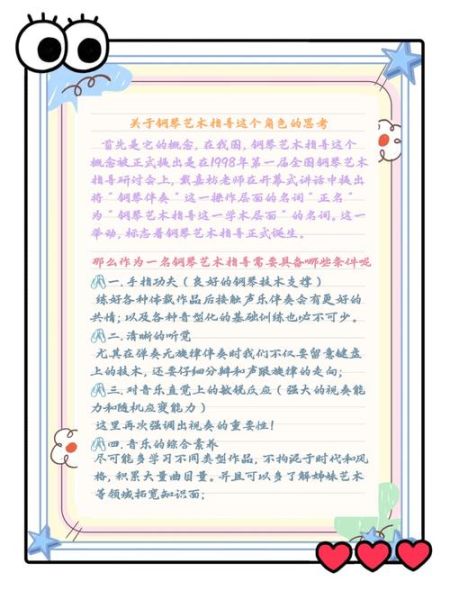 关于钢琴艺术指导这个角色的思考
首先是它的概念，在我国，钢琴艺术指导这个
概念被正式提出是在1998年第一届全国钢琴艺术
指导研讨会上，戴嘉枋老师在开幕式讲话中提出
将“钢琴伴奏”这一操作层面的名词“正名”
为“钢琴艺术指导这一学术层面”的名词。这一
举动，标志着钢琴艺术指导正式诞生。
那么作为一名钢琴艺术指导需要具备哪些条件呢
一.手指功夫（良好的钢琴技术支撑）
练好各种体裁作品后接触声乐伴奏会有更好的
共情；以及各种音型化的基础训练也必不可少。
二.清晰的听觉
尤其在弹奏无旋律伴奏时我们不仅要留意键盘
上的技术，还要仔细分辨和声跟旋律的走向；
三.对音乐直觉上的敏锐反应（强大的视奏能
力和随机应变能力）
这里再次强调出视奏的重要性！
四.音乐的综合素养
尽可能多学习不同类型作品，不拘泥于时代和风
格，积累大量曲目量。并且可以多了解姊妹艺术
等领域拓宽知识面；